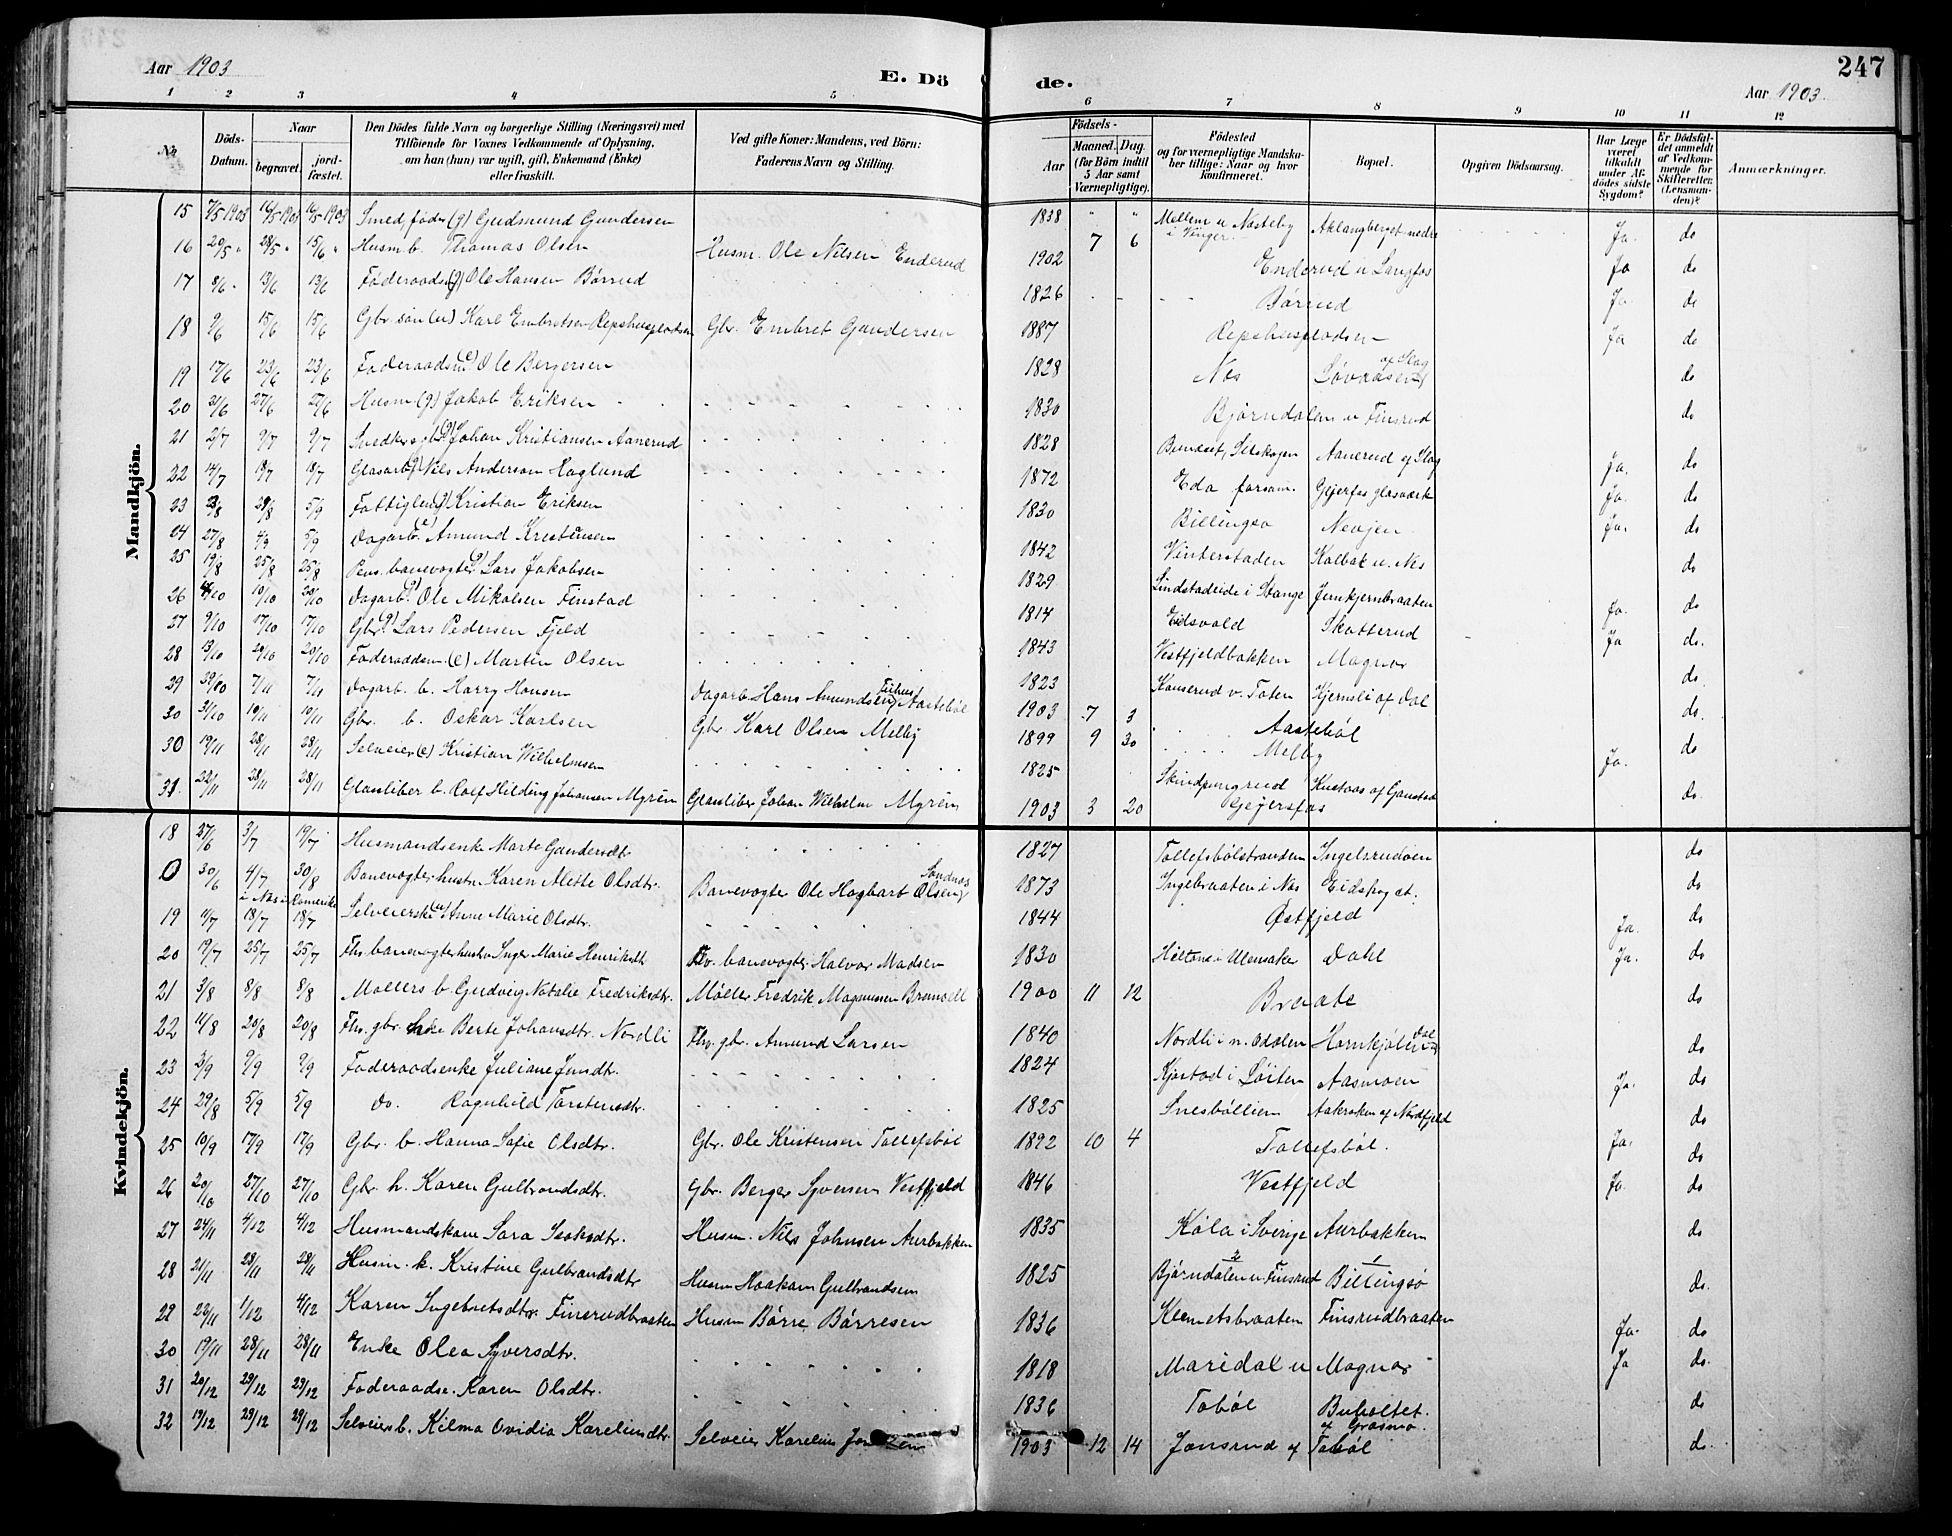 Aar 1903
E. Dö
de.
247
Aar 1903.
1 2 3 4 5 6 7 8 9 10 11 12
No.
Döds-Datum.
Naar
begravet.
jord-fæstet.
Den Dödes fulde Navn og borgerlige Stilling (Næringsvei) med Tilföiende for Voxnes Vedkommende af Oplysning, om han (hun) var ugift, gift, Enkemand (Enke) eller fraskilt.
Ved gifte Koner: Mandens, ved Börn: Faderens Navn og Stilling.
Födsels-
Aar
Maaned. Dag.
(for Börn indtil 5 Aar samt Værnepligtige).
Födested og for værnepligtige Mandskaber tillige: Naar og hvor konfirmeret.
Bopæl.
Opgiven Dödsaarsag.
Har Læge været tilkaldt under Afdödes sidste Sygdom?
Er Dödsfaldet anmeldt af Vedkommende for Skifteretten (Lensmanden)?
Anmærkninger.
Mandkjön.
15 16/5 1903 Gudmund Gundersen 1838 i Vinger Ja do
16 20/5 28/5 15/6 Husm. b. Thomas Olsen Husm. Ole Nilsen Enderud 1902 7 6 Enderud u Langfos Ja do
17 8/6 13/6 13/6 Föderaadsm (g) Ole Hansen Börrud 1826 Börrud Ja do
18 9/6 15/6 15/6 Gbr. sön (u) Karl Embretsen Repshusplodsen Gbr. Embret Gundersen 1887 Repshusplodsen Ja do
19 17/6 23/6 23/6 Föderaadsm Ole Bergersen 1828 Nes Lövaasen do
20 21/6 27/6 27/6 Husm (g) Jakob Eriksen 1830 Björndalen u Finsrud do
21 2/7 9/7 9/7 Johan Kristiansen Aanerud 1828 Aanerud af Slag Ja. do
22 14/7 18/7 18/7 Glasarb. Nils Anderson Haglund 1872 Eda forsam. Gejerfos glasværk Ja. do
23 28/8 5/9 Fattiglem Kristian Eriksen 1830 Billingsö Ja. do
24 27/8 4/9 5/9 Dagarb. Amund Kristensen 1842 Vinterstaden Kolbak u. Nes do
25 19/8 25/8 25/8 Pens. banevogter Lars Jakobsen 1829 i Stange Jernkjernbraaten do
26 10/10 20/10 Dagarb. Ole Mikalsen Finstad 1814 Eidsvold Skotterud Ja. do
27 9/10 17/10 17/10 Gbr. Lars Pedersen Fjeld 1843 Vestfjeldbakken Magnor Ja do.
28 13/10 20/10 20/10 Föderaadsm. (e) Martin Olsen 1823 Kjernsli af Dal do.
29 29/10 7/11 7/11 Dagarb. b. Harry Hansen Dagarb. Hans Amundsen Aastebøl 1903 7 3 Aastebøl do.
30 31/10 10/11 10/11 Gbr. b. Oskar Karlsen Gbr. Karl Olsen Melby 1899 9 30 Melby do
30 19/11 28/11 28/11 Selveier (e) Kristian Wilhelmsen 1825 Skindpungrud Ja. do.
31 22/11 28/11 28/11 Glassliber b. Rolf Hilding Johansen Myrén Glassliber Johan Wilhelm Myrén 1903 3 20 Gejersfos
Kvindekjön.
18 27/6 3/7 19/7 Husmandsenke Marte Gundersdtr 1827 Tollefsbölstranden Ingelsrudöen do
0 30/6 4/7 30/8 Banevogter hustru Karen Mette Olsdtr. Banevogte Ole Hagbart Olsen Sandnæs 1873 Ingebraaten i Nes Eidskog st. do
i Næs i Romerike
19 11/7 18/7 18/7 Anne Marie Olsdtr. 1844 Østfjeld Ja. do
20 19/7 25/7 25/7 Fhv. banevogter hustru Inger Marie Henriksdtr Fhv. banevogter Halvor Madsen 1830 i Ullensaker Dahl Ja. do
21 3/8 8/8 8/8 Møllers b. Gudvig Natalie Fredriksdtr. Møller Fredrik Magnussen 1900 11 12 Braate do
22 11/8 20/8 20/8 Fhv. gbr. Berte Johansdtr. Nordli Fhv. gbr. Amund Larsen 1840 Nordli i n. Odalen do
23 3/9 9/9 9/9 Föderaadsenke Juliane Jensdtr. 1824 Kjöstad i Löiten Aasmoen Ja. do
24 29/8 5/9 5/9 do. Ragnhild Torstensdtr. 1825 Snesböllien Aakroken af Nordfjeld do
25 10/9 17/9 17/9 Gbr. b. Hanna Sofie Olsdtr. Gbr. Ole Kristensen Tollefsböl 1892 10 4 Tollefsböl. Ja. do
26 20/10 27/10 27/10 Gbr. h. Karen Gulbrandsdtr. Gbr. Berger Syversen Vestfjeld 1846 Vestfjeld Ja. do
27 24/11 4/12 4/12 Husmandskone Sara Isaksdtr. Husm. Nils Johnsen Aurbakken 1835 Köla i Sverige Aurbakken do
28 21/11 28/11 28/11 Husm. k. Kristine Gulbrandsdtr Husm Haakon Gulbrandsen 1825 Björndalen u. Finsrud Billingsö do.
29 22/11 1/12 4/12 Karen Ingebretsdtr. Finsrudbraaten Husm Börre Börresen 1836 Klemetsbraaten Finsrudbraaten Ja. do
30 19/11 28/11 28/11 Enke Olea Syversdtr. 1818 Maridal u Magnor Ja do.
31 20/12 29/12 29/12 Föderaadse. Karen Olsdtr. 1836 Toböl Buholtet. af Grasmo do
32 19/12 29/12 29/12 Selveiers b. Hilma Ovidia Kareliusdtr. Selveier Karelius Jo 1903 12 14 Jonsrud af Toböl do.